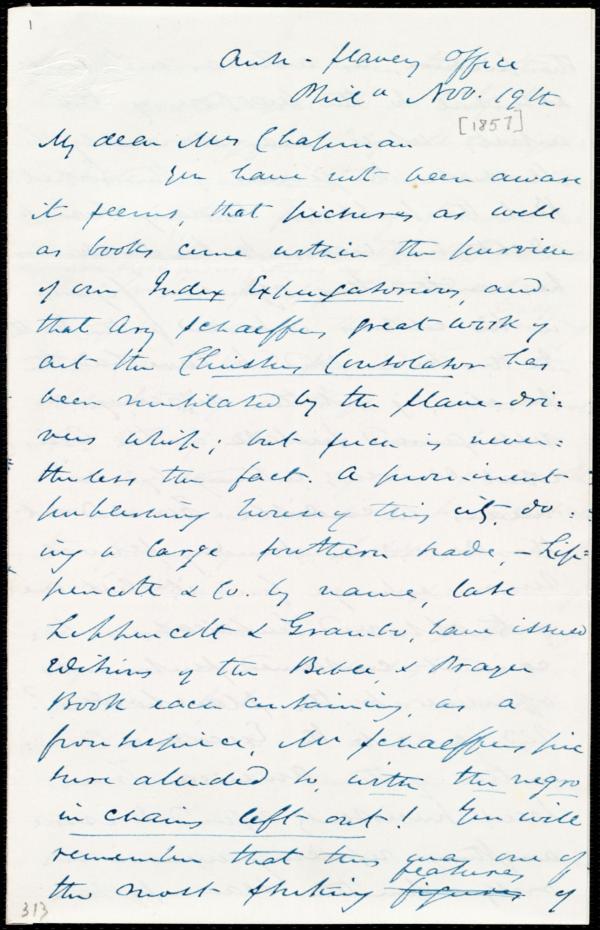 1
Anti-Slavery Office
Phila Nov. 19th
[1857]
My dear Mrs Chapman
You have not been aware
it seems, that pictures as well
as books come within the purview
of our Index Expurgatorius, and
that Ary Schaeffers great work of
art the Christus Consolator has
been mutilated by the slave-dri=
vers whip; but such is never=
theless the fact. A prominent
publishing house of this city, do=
ing a large southern trade, – Lip=
pencott & Co. by name, late
Lippencott & Grambo, have issued
Editions of the Bible & Prayer
Book each containing, as a
frontispiece, Mr Schaeffers pic
ture aluded to, with the negro
in chains left out! You will
remember that this was one of
features
the most striking figures of
313